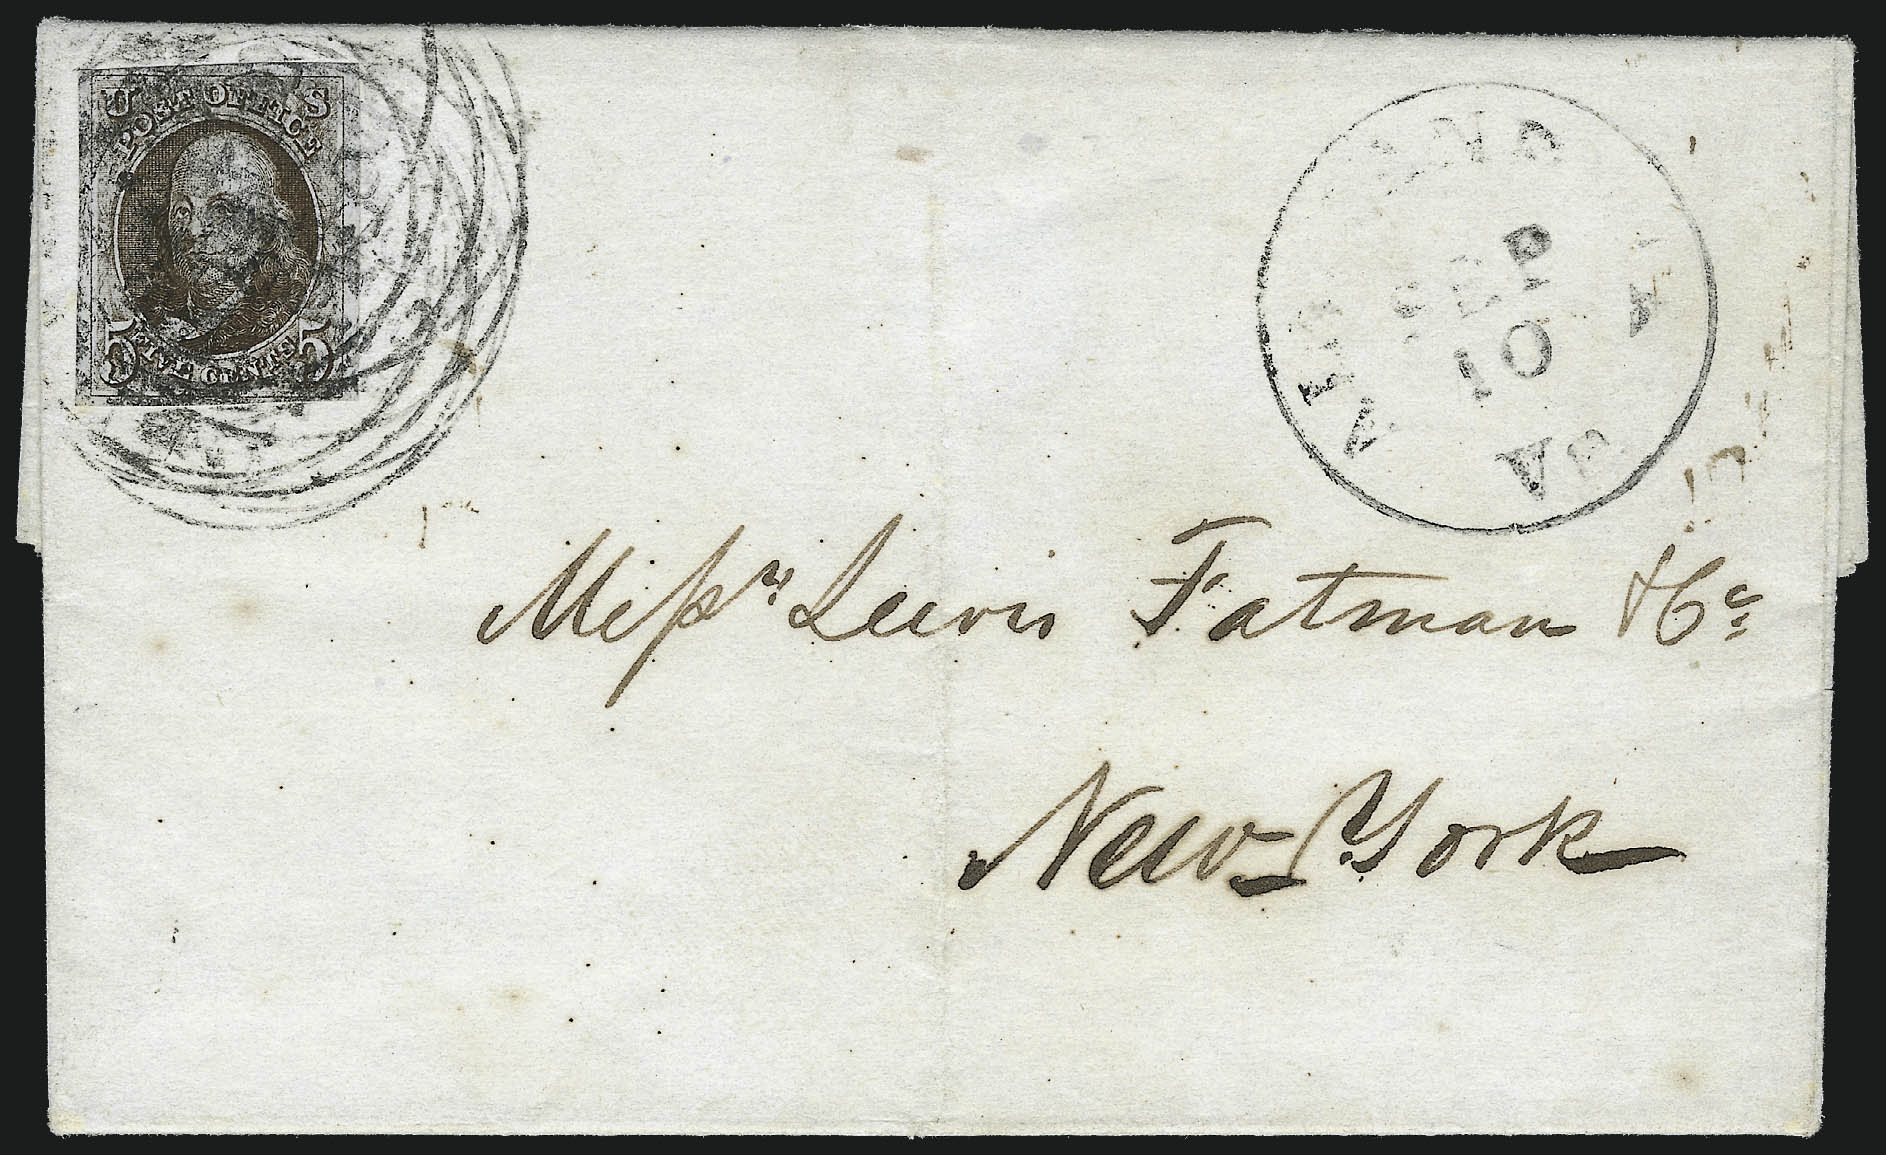 U S
POST OFFICE
5 FIVE CENTS 5
AUGUSTA
GA
SEP
10
Messrs Lewis Fatman & Co
New York